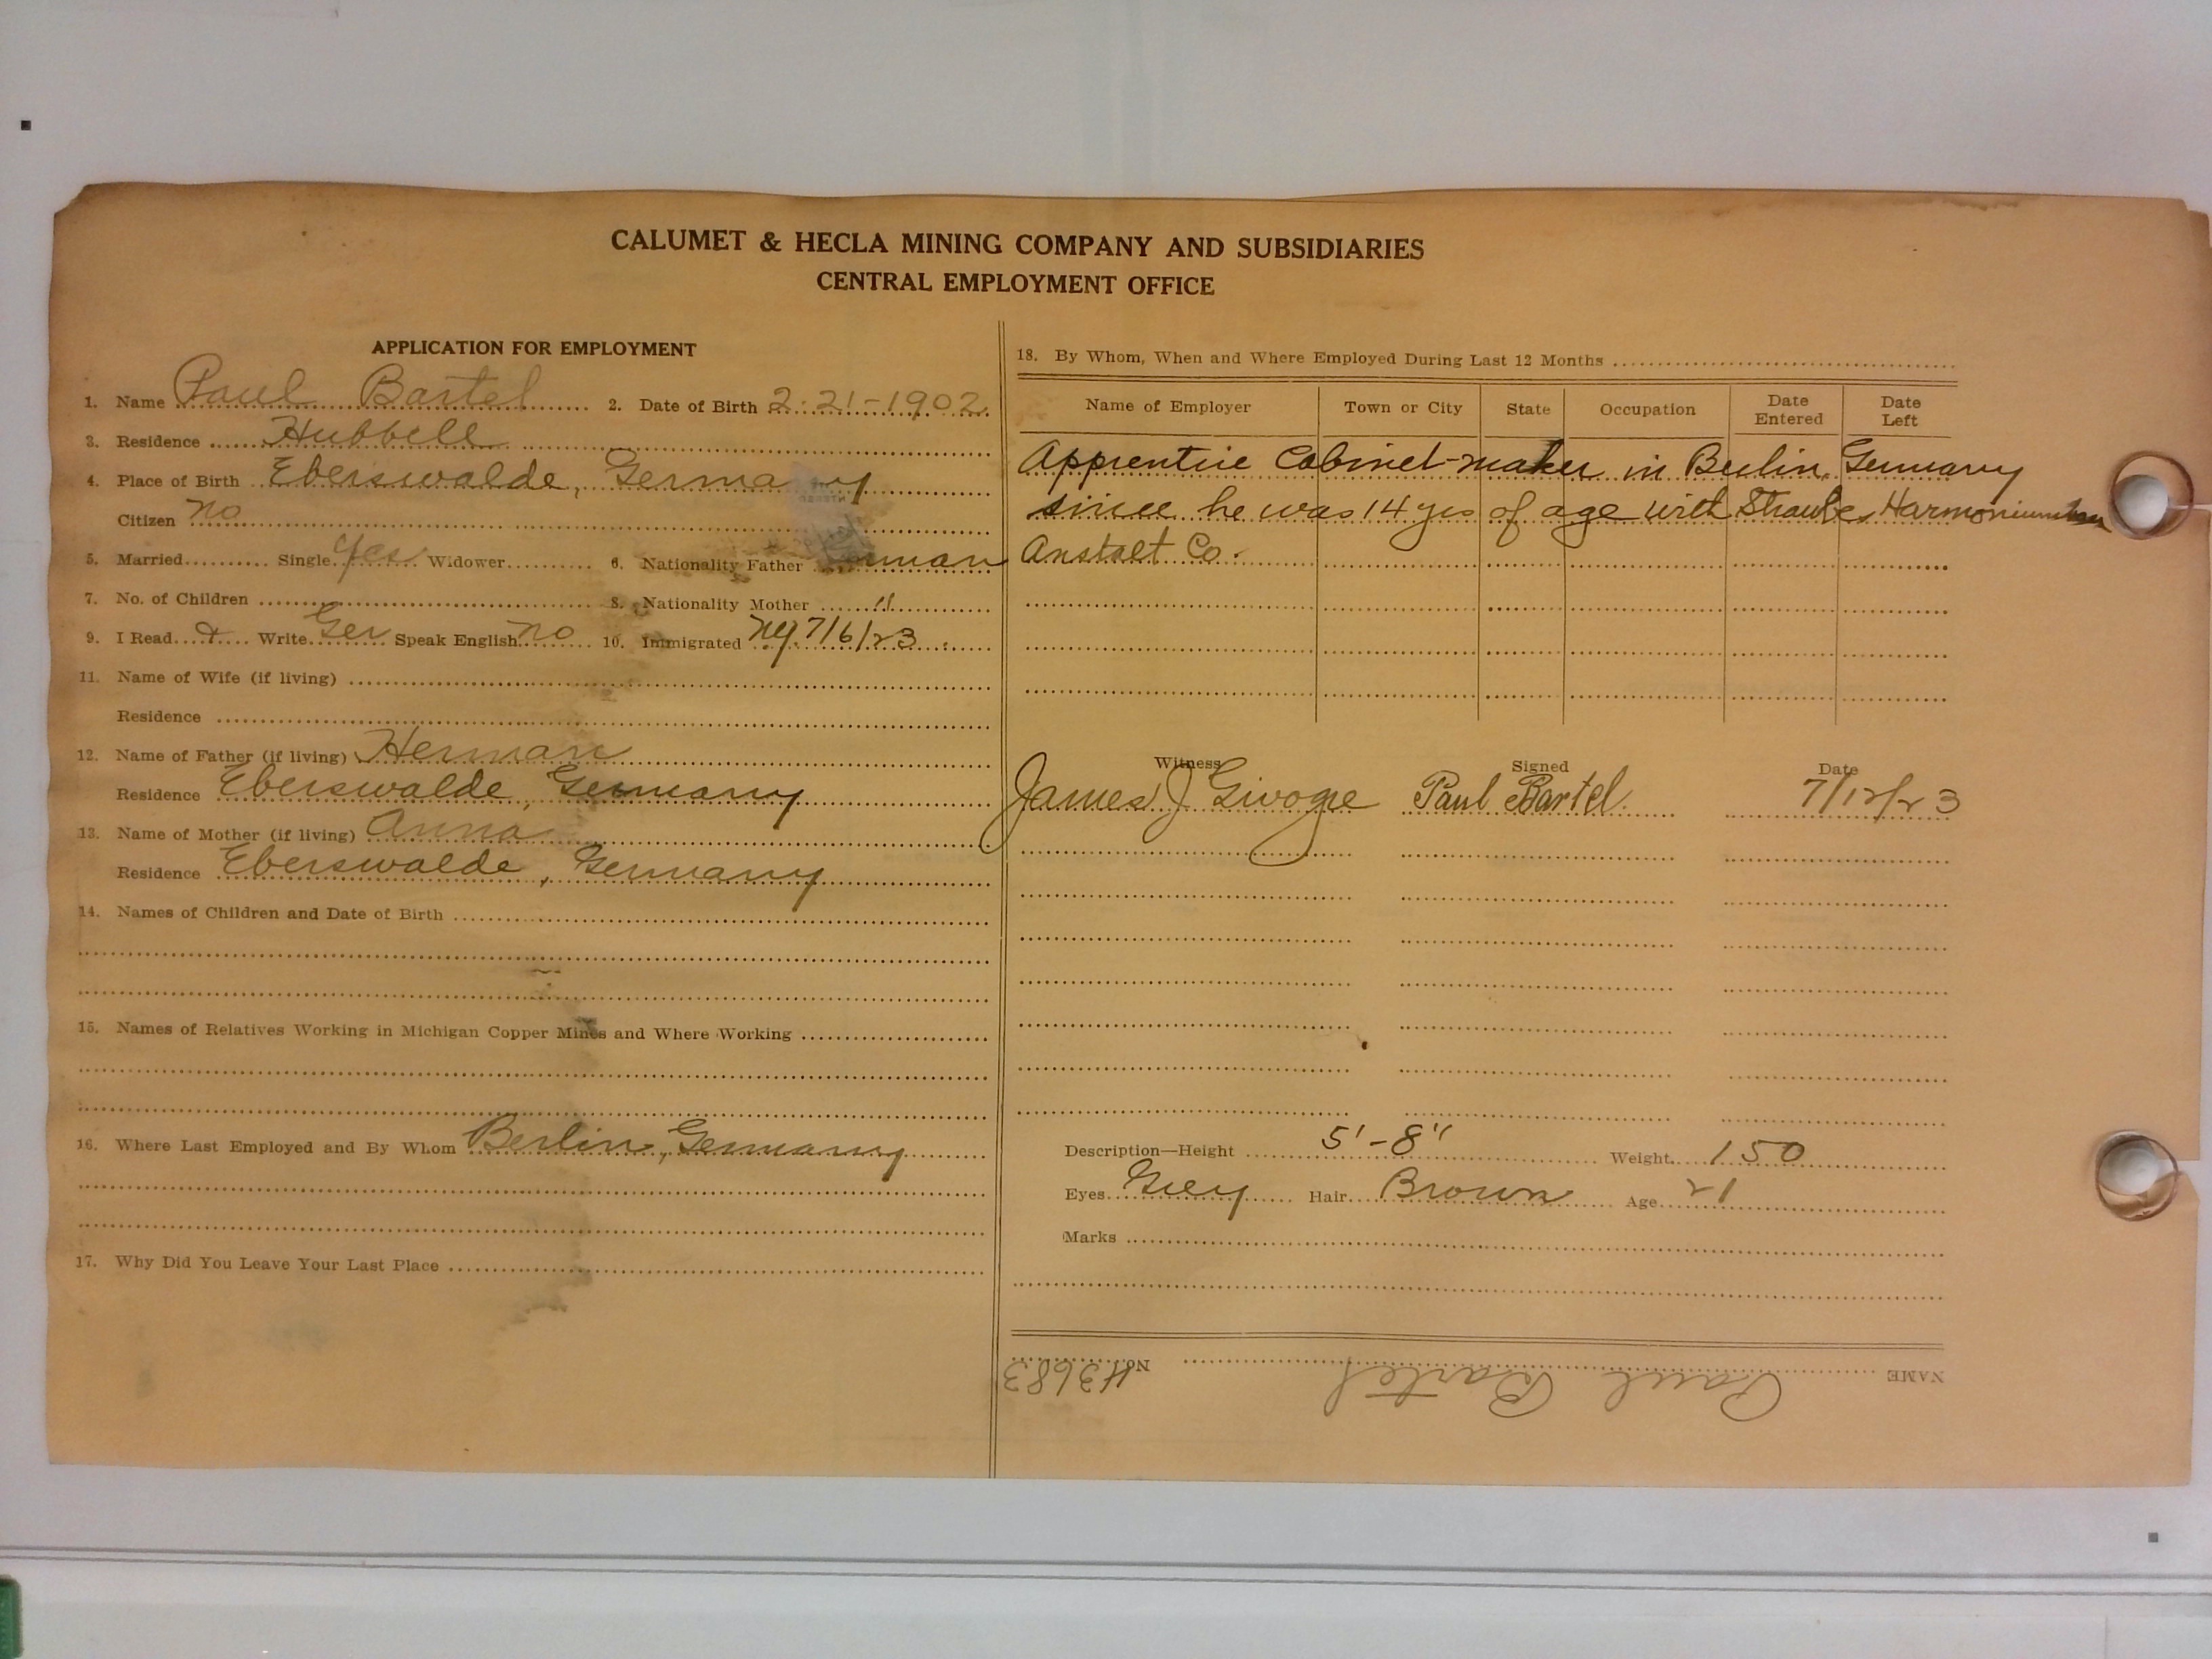 CALUMET & HECLA MINING COMPANY AND SUBSIDIARIES
CENTRAL EMPLOYMENT OFFICE
APPLICATION FOR EMPLOYMENT
1. Name Paul Bartel 2. Date of Birth 2-21-1902
3. Residence Hubbell
4. Place of Birth Eberswalde, Germany
Citizen no
5. Married Single yes Widower 6. Nationality Father German
7. No. of Children 8. Nationality Mother "
9. I Read & Write Ger Speak English no 10. Immigrated NY 7/6/23
11. Name of Wife (if living)
Residence
12. Name of Father (if living) Herman
Residence Eberswalde, Germany
13. Name of Mother (if living) Anna
Residence Eberswalde, Germany
14. Names of Children and Date of Birth
15. Names of Relatives Working in Michigan Copper Mines and Where Working
16. Where Last Employed and By Whom Berlin, Germany
17. Why Did You Leave Your Last Place
18. By Whom, When and Where Employed During Last 12 Months
Name of Employer Town or City State Occupation Date Entered Date Left
Apprentice Cabinet-maker in Berlin, Germany
since he was 14 yrs of age with Straube Harmonium
Anstalt Co.
Witness Signed Date
James J Paul Bartel 7/12/23
Description—Height 5'-8" Weight 150
Eyes Grey Hair Brown Age 21
Marks
NAME Paul Bartel No. H3683